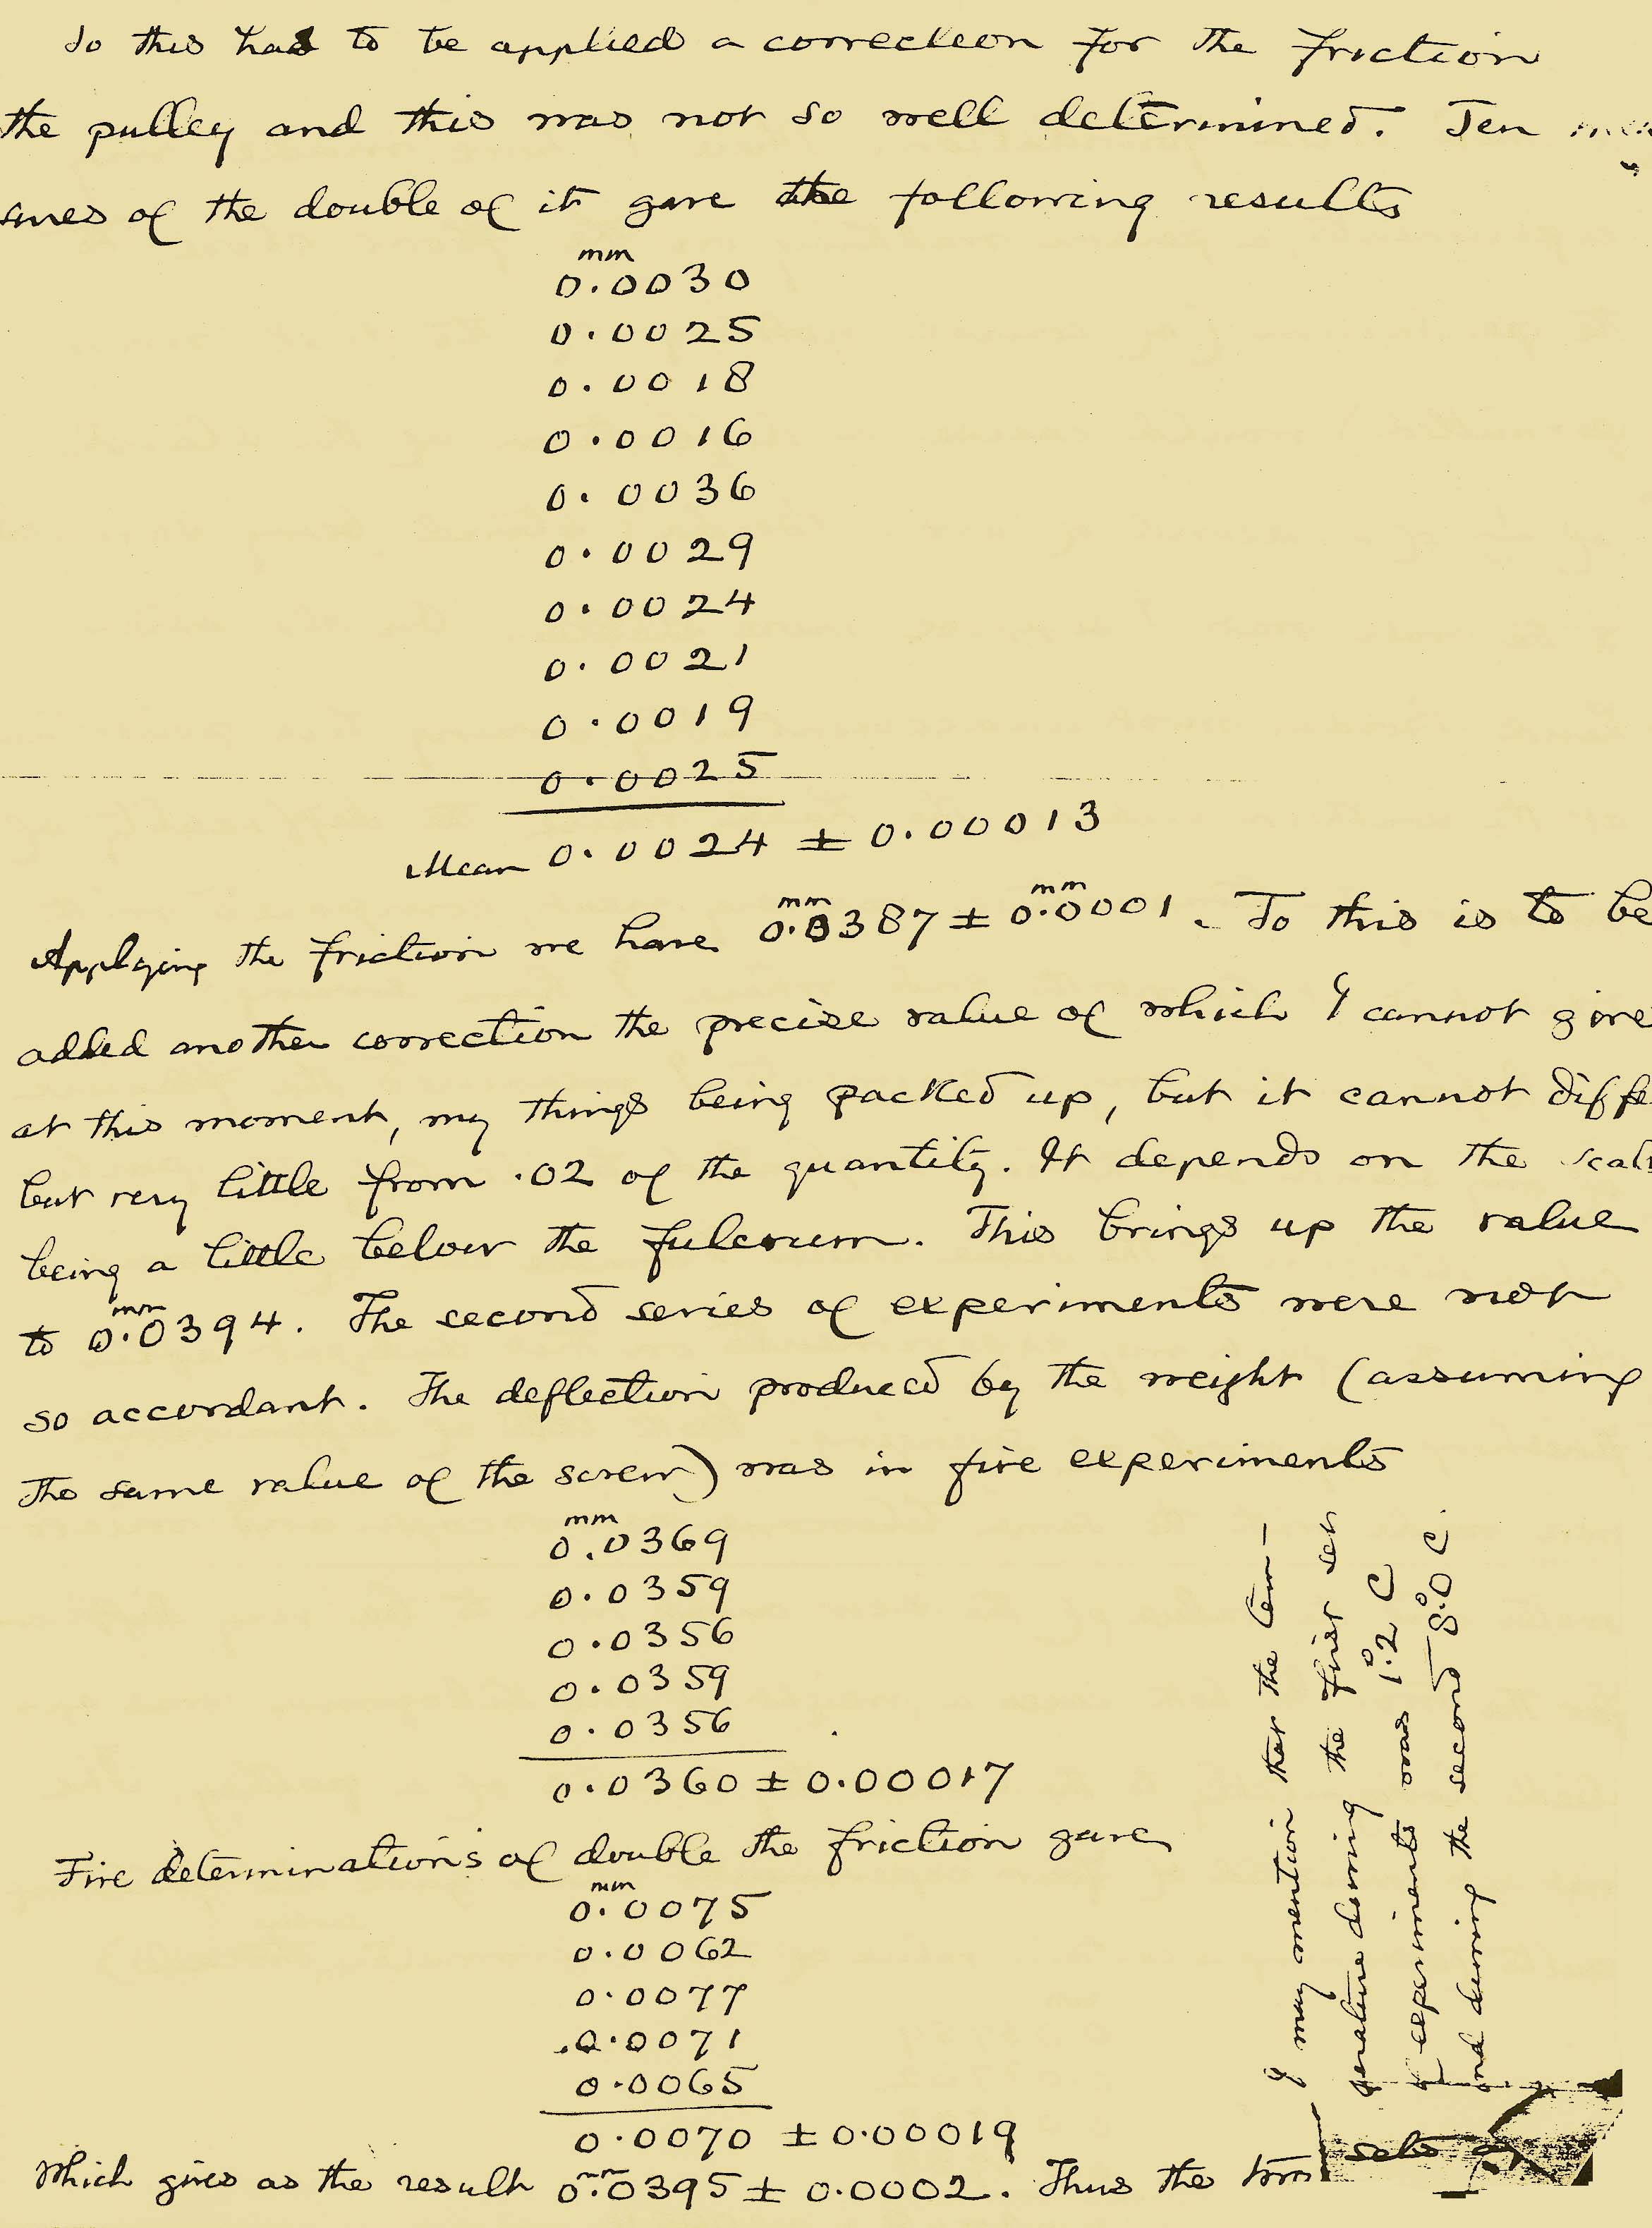 To this had to be applied a correction for the friction
the pulley and this was not so well determined. Ten
sures of the double of it gave the following results
mm
0.0030
0.0025
0.0018
0.0016
0.0036
0.0029
0.0024
0.0021
0.0019
0.0025
Mean 0.0024 ± 0.00013
Applying the friction we have 0.0387 mm ± 0.0001 mm. To this is to be
added another correction the precise value of which I cannot give
at this moment, my things being packed up, but it cannot diffe
but very little from .02 of the quantity. It depends on the scale
being a little below the fulcrum. This brings up the value
to 0.0394 mm. The second series of experiments were not
so accordant. The deflection produced by the weight (assuming
the same value of the screw) was in five experiments
mm
0.0369
0.0359
0.0356
0.0359
0.0356
0.0360 ± 0.00017
Five determinations of double the friction gave
mm
0.0075
0.0062
0.0077
0.0071
0.0065
0.0070 ± 0.00019
Which gives as the result 0.0395 mm ± 0.0002. Thus the two sets of
I may mention that the tem-
perature during the first set
of experiments was 1°.2 C
and during the second 8°.0 C.